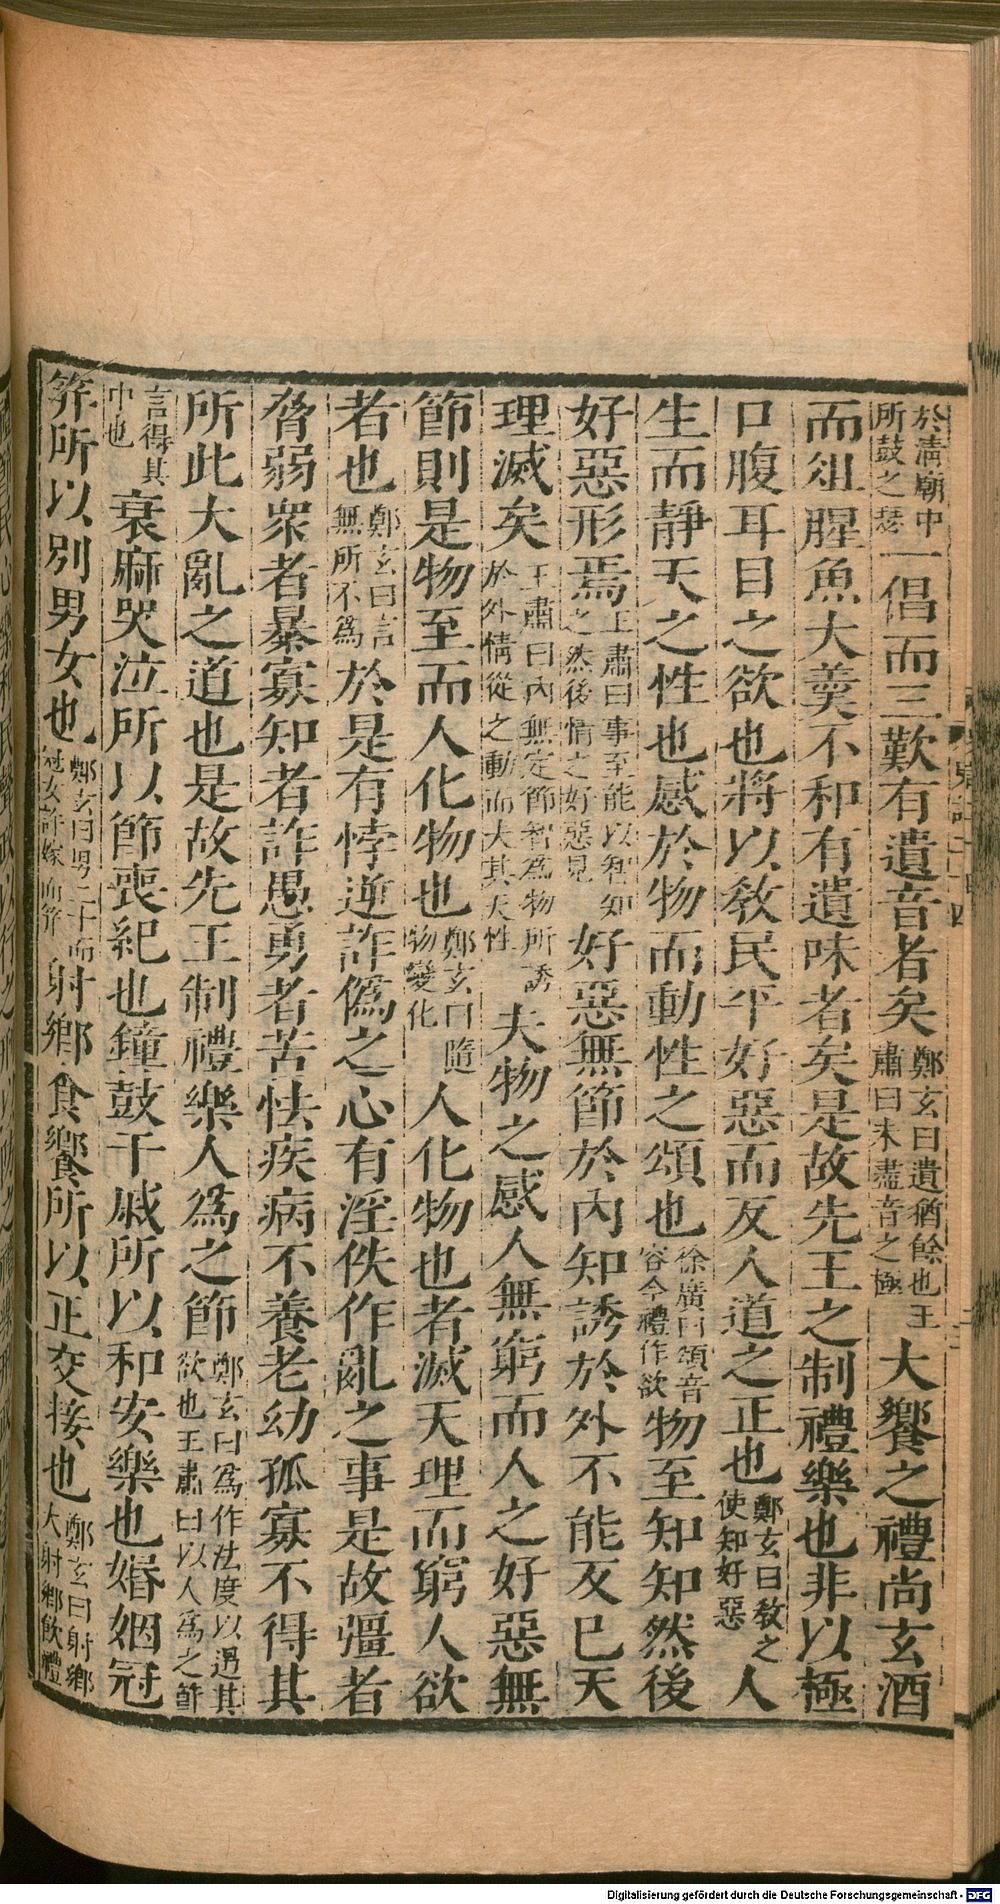 於淸廟中所鼓之瑟一倡而三歎有遺音者矣鄭玄曰遺猶餘也王肅曰未盡音之極大饗之禮尚玄酒
而俎腥魚大羹不和有遺味者矣是故先王之制禮樂也非以極
口腹耳目之欲也將以敎民平好惡而反人道之正也鄭玄曰敎之使知好惡人
生而靜天之性也感於物而動性之頌也徐廣曰頌音容今禮作欲物至知知然後
好惡形焉王肅曰事至能以智知之然後情之好惡見好惡無節於內知誘於外不能反已天
理滅矣王肅曰內無定節智爲物所誘於外情從之動而大其天性夫物之感人無窮而人之好惡無
節則是物至而人化物也鄭玄曰隨物變化人化物也者滅天理而窮人欲
者也鄭玄曰言無所不爲於是有悖逆詐僞之心有淫佚作亂之事是故彊者
脅弱衆者暴寡知者詐愚勇者苦怯疾病不養老幼孤寡不得其
所此大亂之道也是故先王制禮樂人爲之節鄭玄曰爲作法度以遏其欲也王肅曰以人爲之節
言得其中也衰麻哭泣所以節喪紀也鐘鼓干戚所以和安樂也婚姻冠
笄所以別男女也鄭玄曰男二十而冠女許嫁而笄射鄉食饗所以正交接也鄭玄曰射鄉大射鄉飮禮
Digitalisierung gefördert durch die Deutsche Forschungsgemeinschaft - DFG